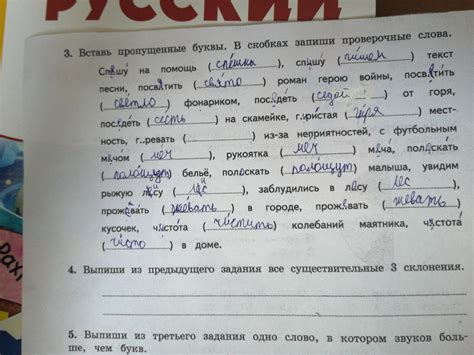 РУССКИЙ
3. Вставь пропущенные буквы. В скобках запиши проверочные слова.
Спешу на помощь (спешка), спишу (пишем) текст
песни, посвятить (свято) роман герою войны, посветить
(светло) фонариком, поседеть (седей) от горя,
посидеть (сесть) на скамейке, г..ристая (горя) мест-
ность, г..ревать ( ) из-за неприятностей, с футбольным
мячом (меч), рукоятка (меч) меча, полоскать
(полощут) бельё, поласкать (полощут) малыша, увидим
рыжую лису (лис), заблудились в лесу (лес),
проживать (жевать) в городе, прожевать (жевать)
кусочек, частота (чистить) колебаний маятника, чистота
(чисто) в доме.
4. Выпиши из предыдущего задания все существительные 3 склонения.
5. Выпиши из третьего задания одно слово, в котором звуков боль-
ше, чем букв.